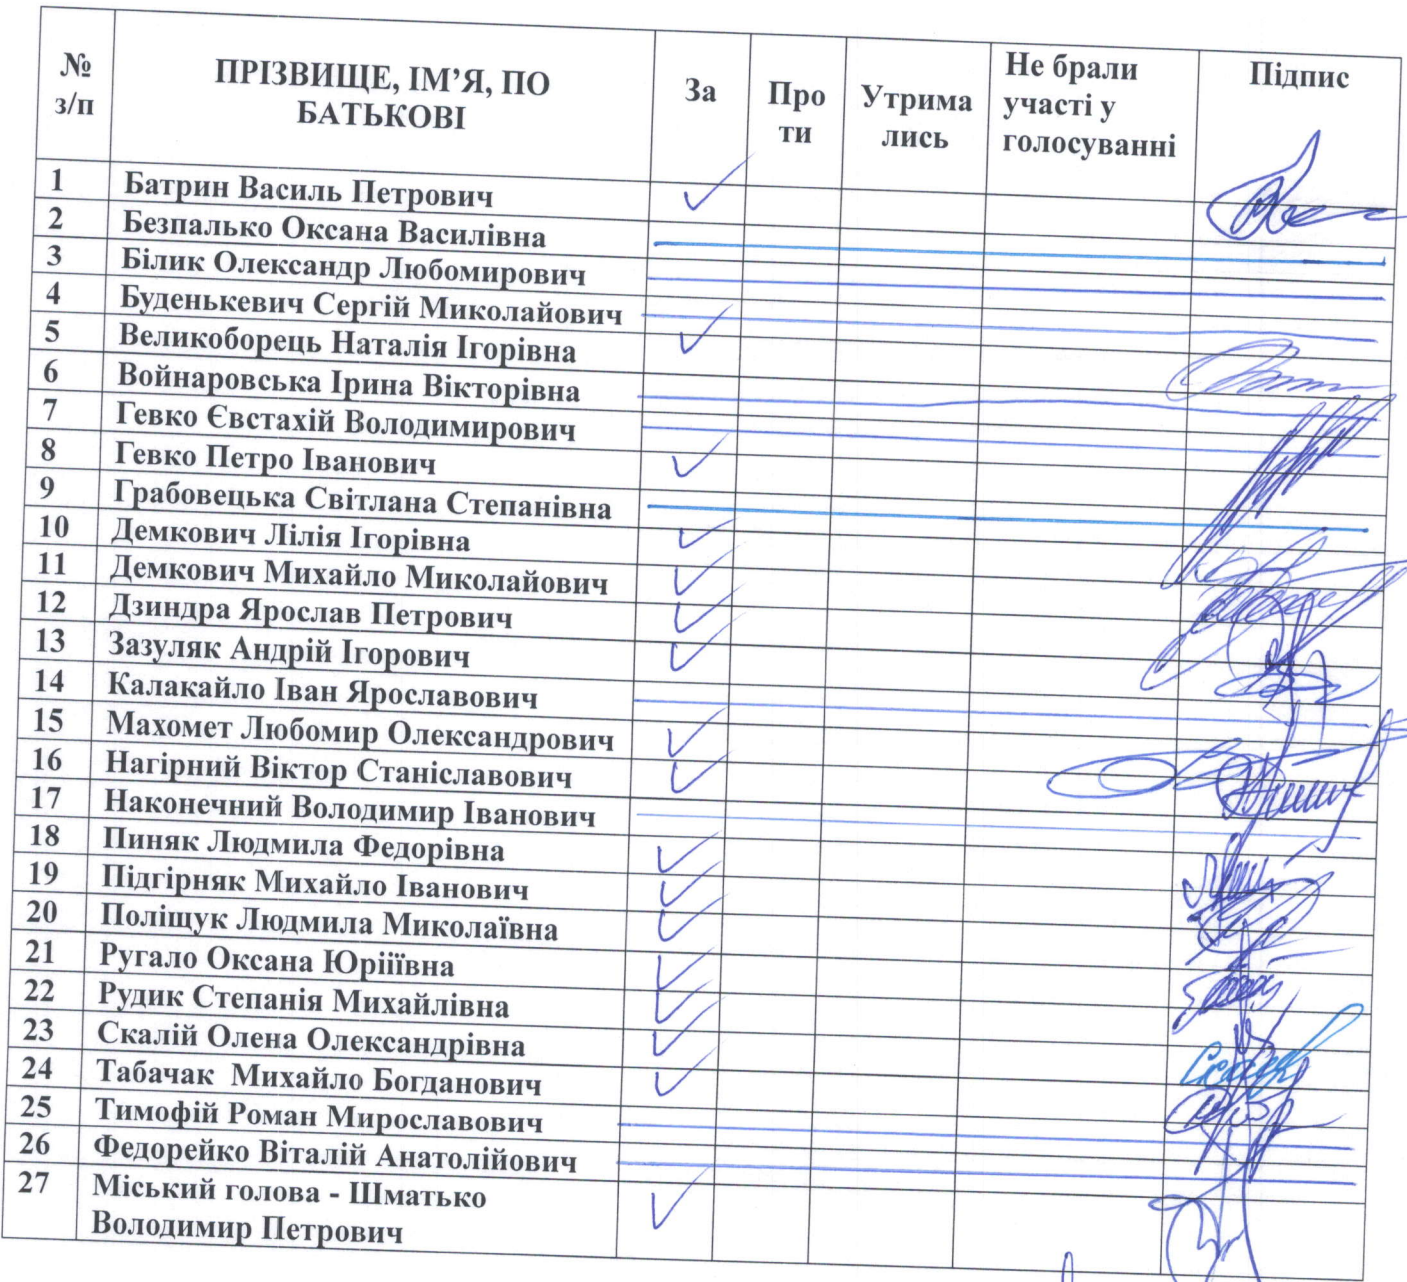 № з/п
ПРІЗВИЩЕ, ІМ’Я, ПО БАТЬКОВІ
За
Про
ти
Утрима
лись
Не брали
участі у
голосуванні
Підпис
1 Батрин Василь Петрович
2 Безпалько Оксана Василівна
3 Білик Олександр Любомирович
4 Буденькевич Сергій Миколайович
5 Великоборець Наталія Ігорівна
6 Войнаровська Ірина Вікторівна
7 Гевко Євстахій Володимирович
8 Гевко Петро Іванович
9 Грабовецька Світлана Степанівна
10 Демкович Лілія Ігорівна
11 Демкович Михайло Миколайович
12 Дзиндра Ярослав Петрович
13 Зазуляк Андрій Ігорович
14 Калакайло Іван Ярославович
15 Махомет Любомир Олександрович
16 Нагірний Віктор Станіславович
17 Наконечний Володимир Іванович
18 Пиняк Людмила Федорівна
19 Підгірняк Михайло Іванович
20 Поліщук Людмила Миколаївна
21 Ругало Оксана Юріїївна
22 Рудик Степанія Михайлівна
23 Скалій Олена Олександрівна
24 Табачак Михайло Богданович
25 Тимофій Роман Мирославович
26 Федорейко Віталій Анатолійович
27 Міський голова - Шматько
Володимир Петрович